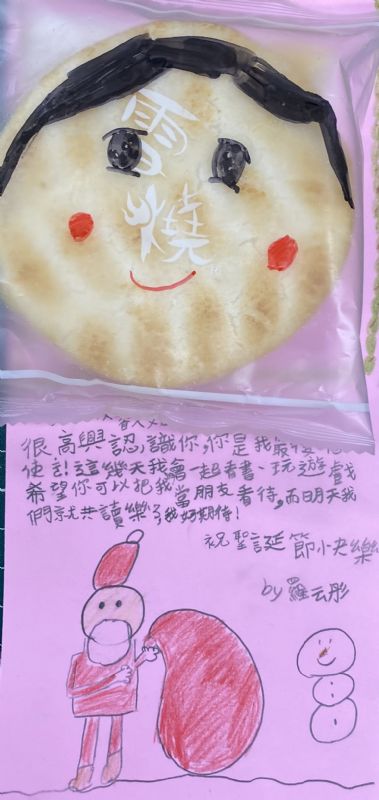 雪燒
很高興認識你,你是我最
這幾天我會一起看書、玩遊戲
希望你可以把我當朋友看待,而日明天我
們就共讀樂了我好期待!
祝聖誕節快樂
by羅云彤